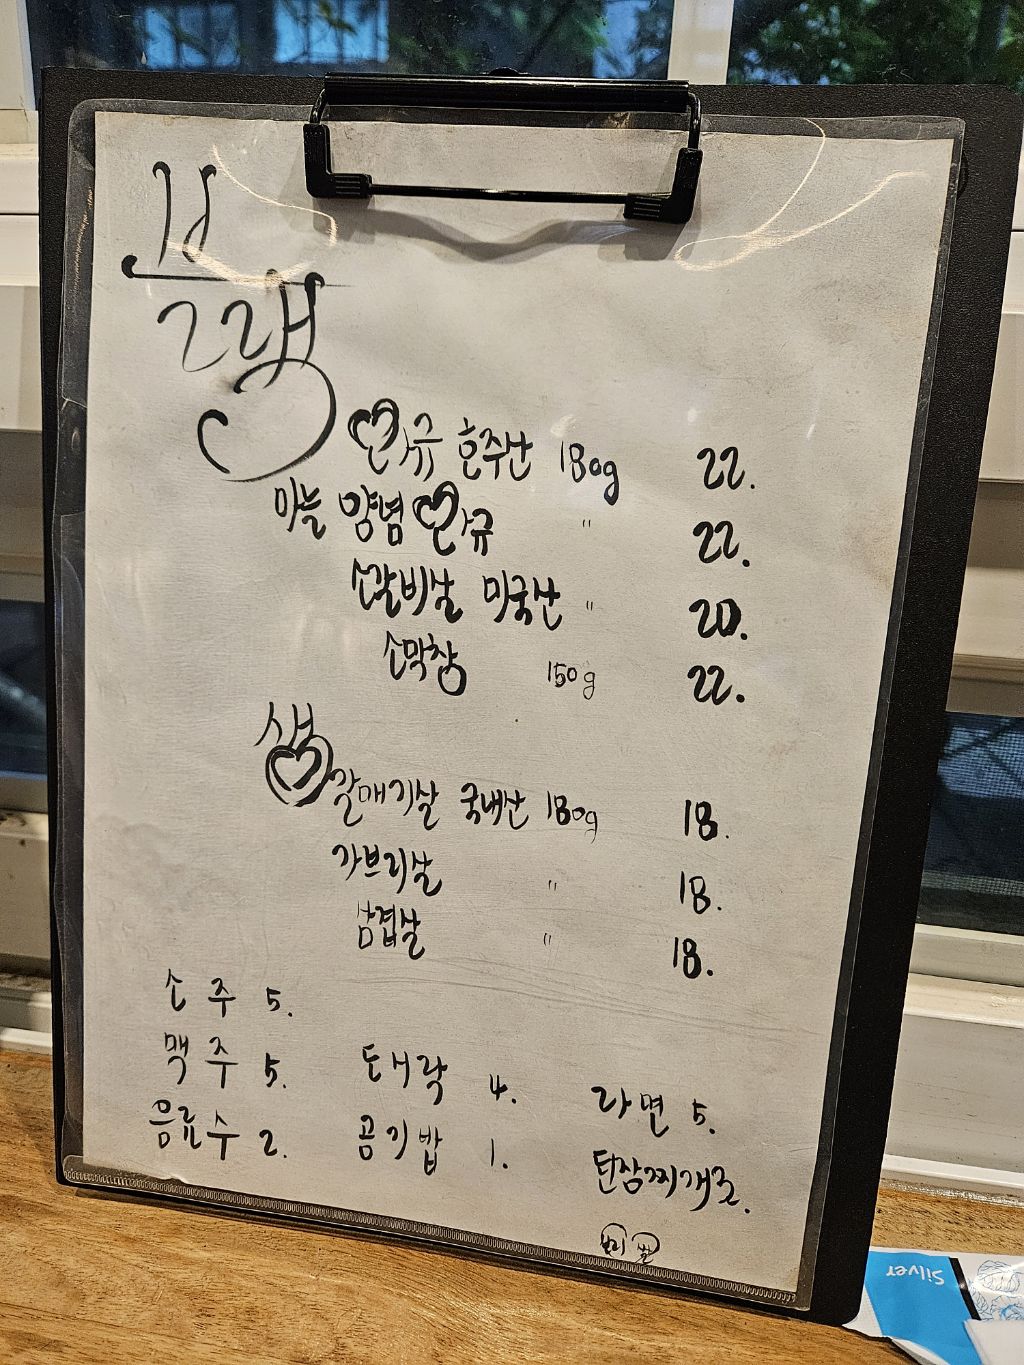 와규 호주산 180g 22.
마늘 양념 와규 " 22.
소갈비살 미국산 " 20.
소막창 150g 22.
생
갈매기살 국내산 180g 18.
가브리살 " 18.
삼겹살 " 18.
소주 5.
맥주 5. 도시락 4. 라면 5.
음료수 2. 공기밥 1. 된장찌개 3.
Silver